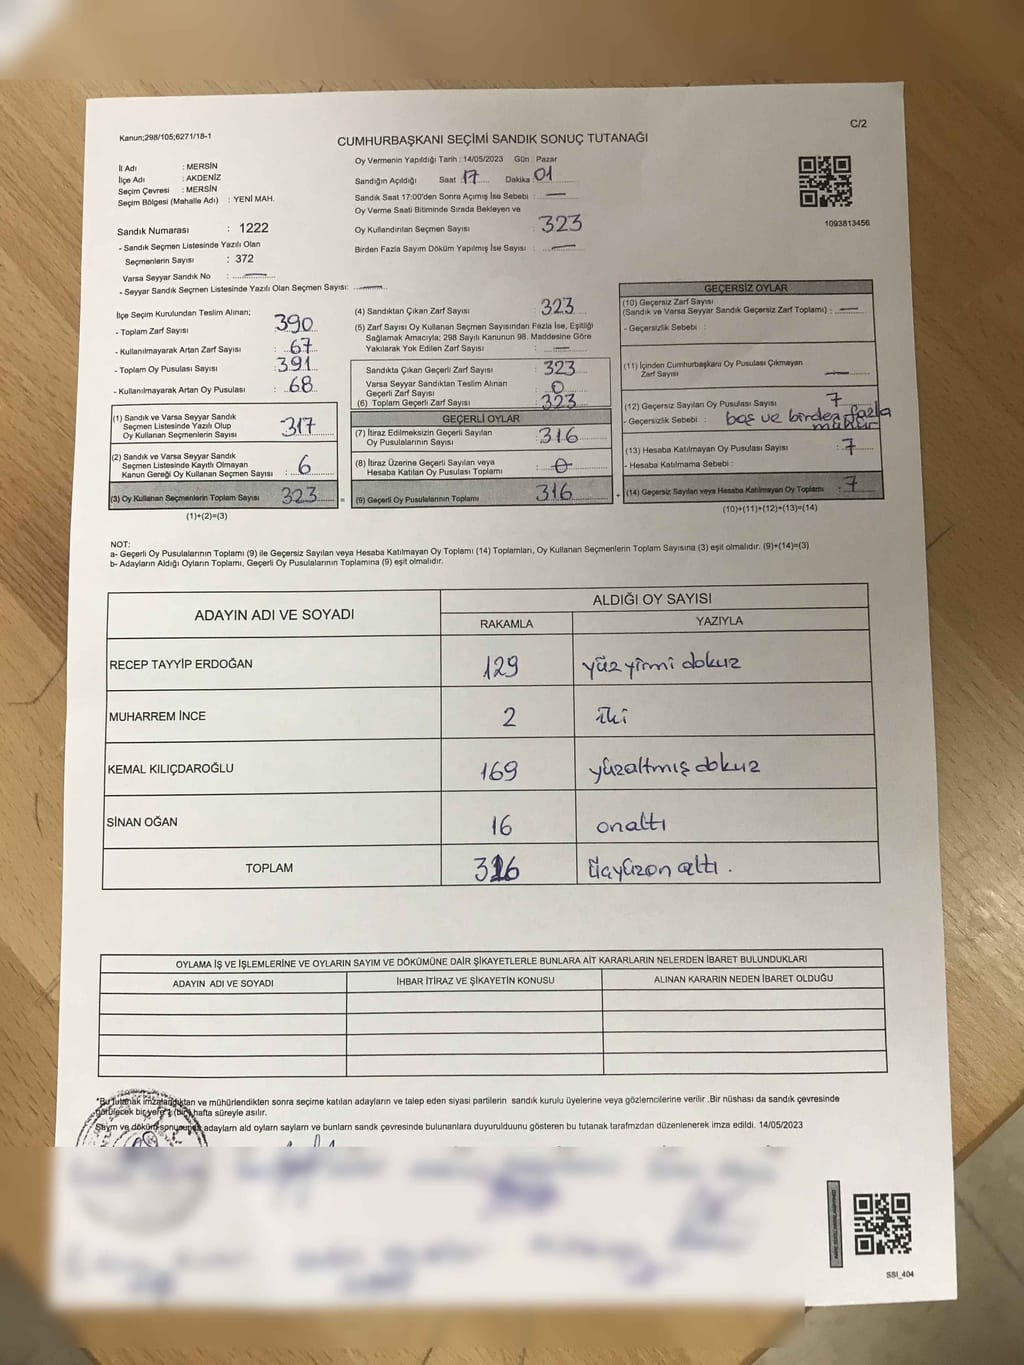 Kanun;298/105;6271/18-1
C/2
CUMHURBAŞKANI SEÇİMİ SANDIK SONUÇ TUTANAĞI
İl Adı : MERSİN
İlçe Adı : AKDENİZ
Seçim Çevresi : MERSİN
Seçim Bölgesi (Mahalle Adı) : YENİ MAH.
Oy Vermenin Yapıldığı Tarih : 14/05/2023 Gün : Pazar
Sandığın Açıldığı Saat 17 Dakika 01
Sandık Saat 17:00'den Sonra Açımış İse Sebebi : —
Oy Verme Saati Bitiminde Sırada Bekleyen ve
Oy Kullandırılan Seçmen Sayısı : 323
Birden Fazla Sayım Döküm Yapılmış İse Sayısı : —
1093813456
Sandık Numarası : 1222
- Sandık Seçmen Listesinde Yazılı Olan
Seçmenlerin Sayısı : 372
Varsa Seyyar Sandık No : —
- Seyyar Sandık Seçmen Listesinde Yazılı Olan Seçmen Sayısı: —
İlçe Seçim Kurulundan Teslim Alınan;
- Toplam Zarf Sayısı : 390
- Kullanılmayarak Artan Zarf Sayısı : 67
- Toplam Oy Pusulası Sayısı : 391
- Kullanılmayarak Artan Oy Pusulası : 68
(1) Sandık ve Varsa Seyyar Sandık
Seçmen Listesinde Yazılı Olup
Oy Kullanan Seçmenlerin Sayısı : 317
(2) Sandık ve Varsa Seyyar Sandık
Seçmen Listesinde Kayıtlı Olmayan
Kanun Gereği Oy Kullanan Seçmen Sayısı : 6
(3) Oy Kullanan Seçmenlerin Toplam Sayısı : 323 =
(1)+(2)=(3)
(4) Sandıktan Çıkan Zarf Sayısı : 323
(5) Zarf Sayısı Oy Kullanan Seçmen Sayısından Fazla İse, Eşitliği
Sağlamak Amacıyla; 298 Sayılı Kanunun 98. Maddesine Göre
Yakılarak Yok Edilen Zarf Sayısı : —
Sandıkta Çıkan Geçerli Zarf Sayısı : 323
Varsa Seyyar Sandıktan Teslim Alınan
Geçerli Zarf Sayısı : 0
(6) Toplam Geçerli Zarf Sayısı : 323
GEÇERLİ OYLAR
(7) İtiraz Edilmeksizin Geçerli Sayılan
Oy Pusulalarının Sayısı : 316
(8) İtiraz Üzerine Geçerli Sayılan veya
Hesaba Katılan Oy Pusulası Toplamı : 0
(9) Geçerli Oy Pusulalarının Toplamı : 316 +
GEÇERSİZ OYLAR
(10) Geçersiz Zarf Sayısı
(Sandık ve Varsa Seyyar Sandık Geçersiz Zarf Toplamı) : —
- Geçersizlik Sebebi :
(11) İçinden Cumhurbaşkanı Oy Pusulası Çıkmayan
Zarf Sayısı : —
(12) Geçersiz Sayılan Oy Pusulası Sayısı : 7
- Geçersizlik Sebebi : boş ve birden fazla
mühür
(13) Hesaba Katılmayan Oy Pusulası Sayısı : 7
- Hesaba Katılmama Sebebi :
(14) Geçersiz Sayılan veya Hesaba Katılmayan Oy Toplamı : 7
(10)+(11)+(12)+(13)=(14)
NOT:
a- Geçerli Oy Pusulalarının Toplamı (9) ile Geçersiz Sayılan veya Hesaba Katılmayan Oy Toplamı (14) Toplamları, Oy Kullanan Seçmenlerin Toplam Sayısına (3) eşit olmalıdır. (9)+(14)=(3)
b- Adayların Aldığı Oyların Toplamı, Geçerli Oy Pusulalarının Toplamına (9) eşit olmalıdır.
ADAYIN ADI VE SOYADI
ALDIĞI OY SAYISI
RAKAMLA YAZIYLA
RECEP TAYYİP ERDOĞAN 129 yüz yirmi dokuz
MUHARREM İNCE 2 iki
KEMAL KILIÇDAROĞLU 169 yüzaltmış dokuz
SİNAN OĞAN 16 onaltı
TOPLAM 316 Üçyüzon altı.
OYLAMA İŞ VE İŞLEMLERİNE VE OYLARIN SAYIM VE DÖKÜMÜNE DAİR ŞİKAYETLERLE BUNLARA AİT KARARLARIN NELERDEN İBARET BULUNDUKLARI
ADAYIN ADI VE SOYADI İHBAR İTİRAZ VE ŞİKAYETİN KONUSU ALINAN KARARIN NEDEN İBARET OLDUĞU
*Bu tutanak imzalandıktan ve mühürlendikten sonra seçime katılan adayların ve talep eden siyasi partilerin sandık kurulu üyelerine veya gözlemcilerine verilir .Bir nüshası da sandık çevresinde
görülecek bir yere 1 (bir) hafta süreyle asılır.
Sayım ve döküm sonucunda adayların ald oyların sayların ve bunların sandk çevresinde bulunanlara duyurulduunu gösteren bu tutanak tarafmzdan düzenlenerek imza edildi. 14/05/2023
SSI_404